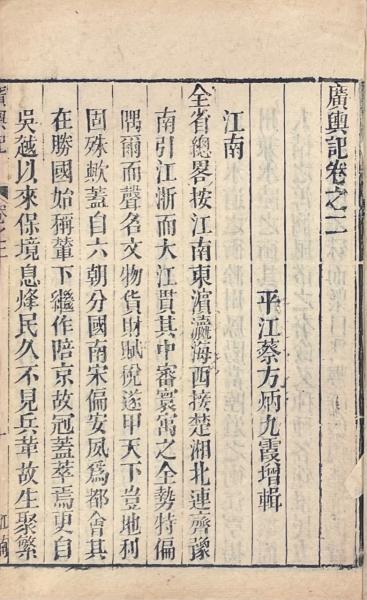 廣輿記卷之二
平江蔡方炳九霞增輯
江南
全省總畧按江南東濵瀛海西接楚湘北連齊豫
南引江浙而大江貫其中審寰寓之全勢特偏
隅爾而聲名文物貨財賦稅遂甲天下豈地利
固殊歟蓋自六朝分國南宋偏安夙爲都會其
在勝國始稱輦下繼作陪京故冠蓋萃焉更自
吳越以來保境息烽民久不見兵革故生聚繁
廣輿記 卷之二 江南